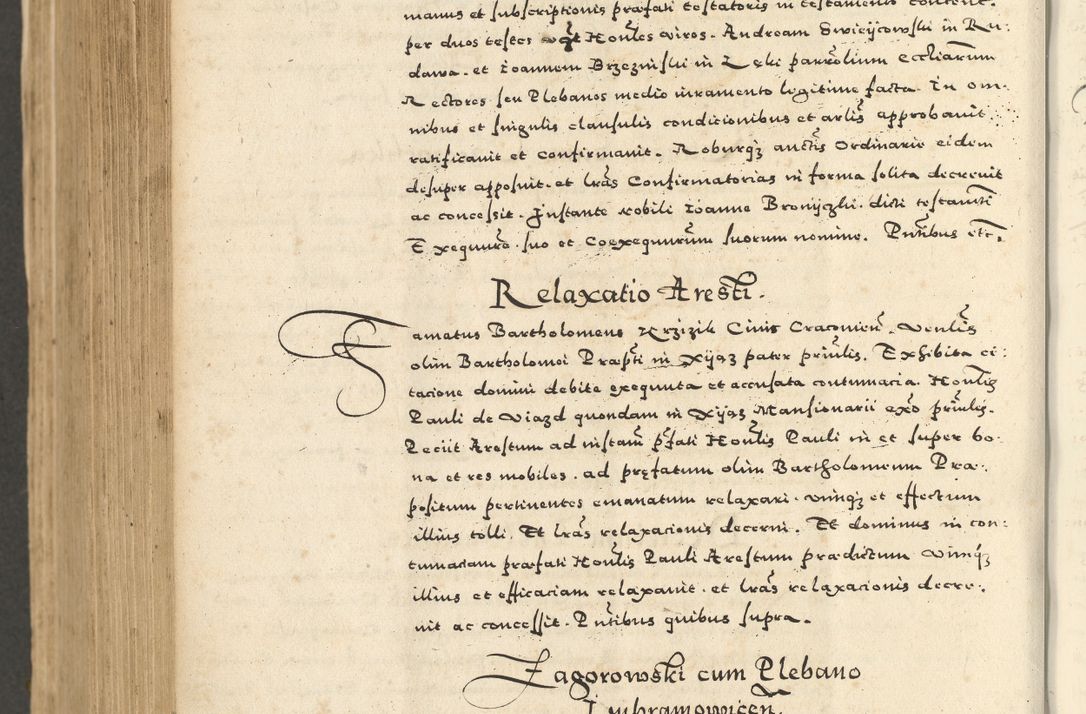 manus et subscriptionis præfati testatoris in testamento content:
per duos testes vgt Honles viros. Andream Swieÿcowski in Ru:
dawa. et Ioannem Brzezinski in Lęki parrolium Eccliarum
Rectores seu Plebanos medio iuramento legitime facta. In om:
nibus et singulis clausulis conditionibus et arlis approbauit
ratificauit et confirmauit. Roburqz auctis Ordinarie eidem
desuper apposuit. et lras Confirmatorias in forma solita decreuit
ac concessit. Instante nobili Ioanne Bronÿczki. dicti testamti
Exequure. suo et Coexequurum suorum nomine. Pntibus etc.
Relaxatio Aresti.
Famatus Bartholomeus Krzizik Ciuis Cracouien. Venlis
olim Bartholomei Præpti in Xÿąz pater prinlis. Exhibita ci:
tacione domini debite exequuta et accusata contumacia. Honlis
Pauli de Viazd quondam in Xÿąz Mansionarii exo prinlis.
Peciit Arestum ad instam pfati Honlis Pauli in et super bo:
na et res mobiles. ad pręfatum olim Bartholomeum Præ:
positum pertinentes emanatum relaxari. vimqz et effectum
illius tolli. Et lras relaxacionis decerni. Et dominus in con:
tumaciam præfati Honlis Pauli Arestum prædictum vimqz
illius et efficaciam relaxauit. et lras relaxacionis decre:
uit ac concessit. Pntibus quibus supra.
Zagorowski cum Plebano
Imbramowicen.